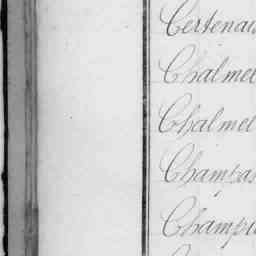 Certenau
Chalmet
Chalmel
Champa
Champi